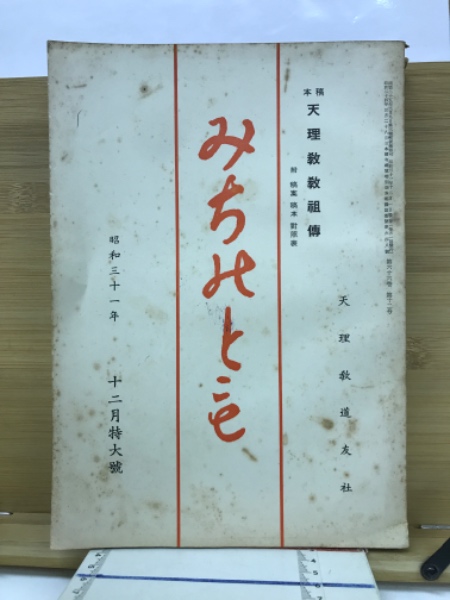 稿本
天理教教祖傳
附 稿案 稿本 對照表
天理教道友社
みちのとも
昭和三十一年 十二月特大號